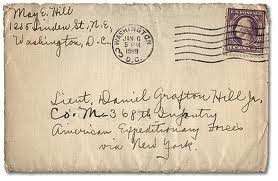 May E. Hill
1205 Linden St., N.E,
Washington, D.-C.
WASHINGTON
JAN 6
5 PM
1919
D.C.
Lieut. Daniel Grafton Hill Jr.
Co. M - 368th Infantry
American Expeditionary Forces
via New York.